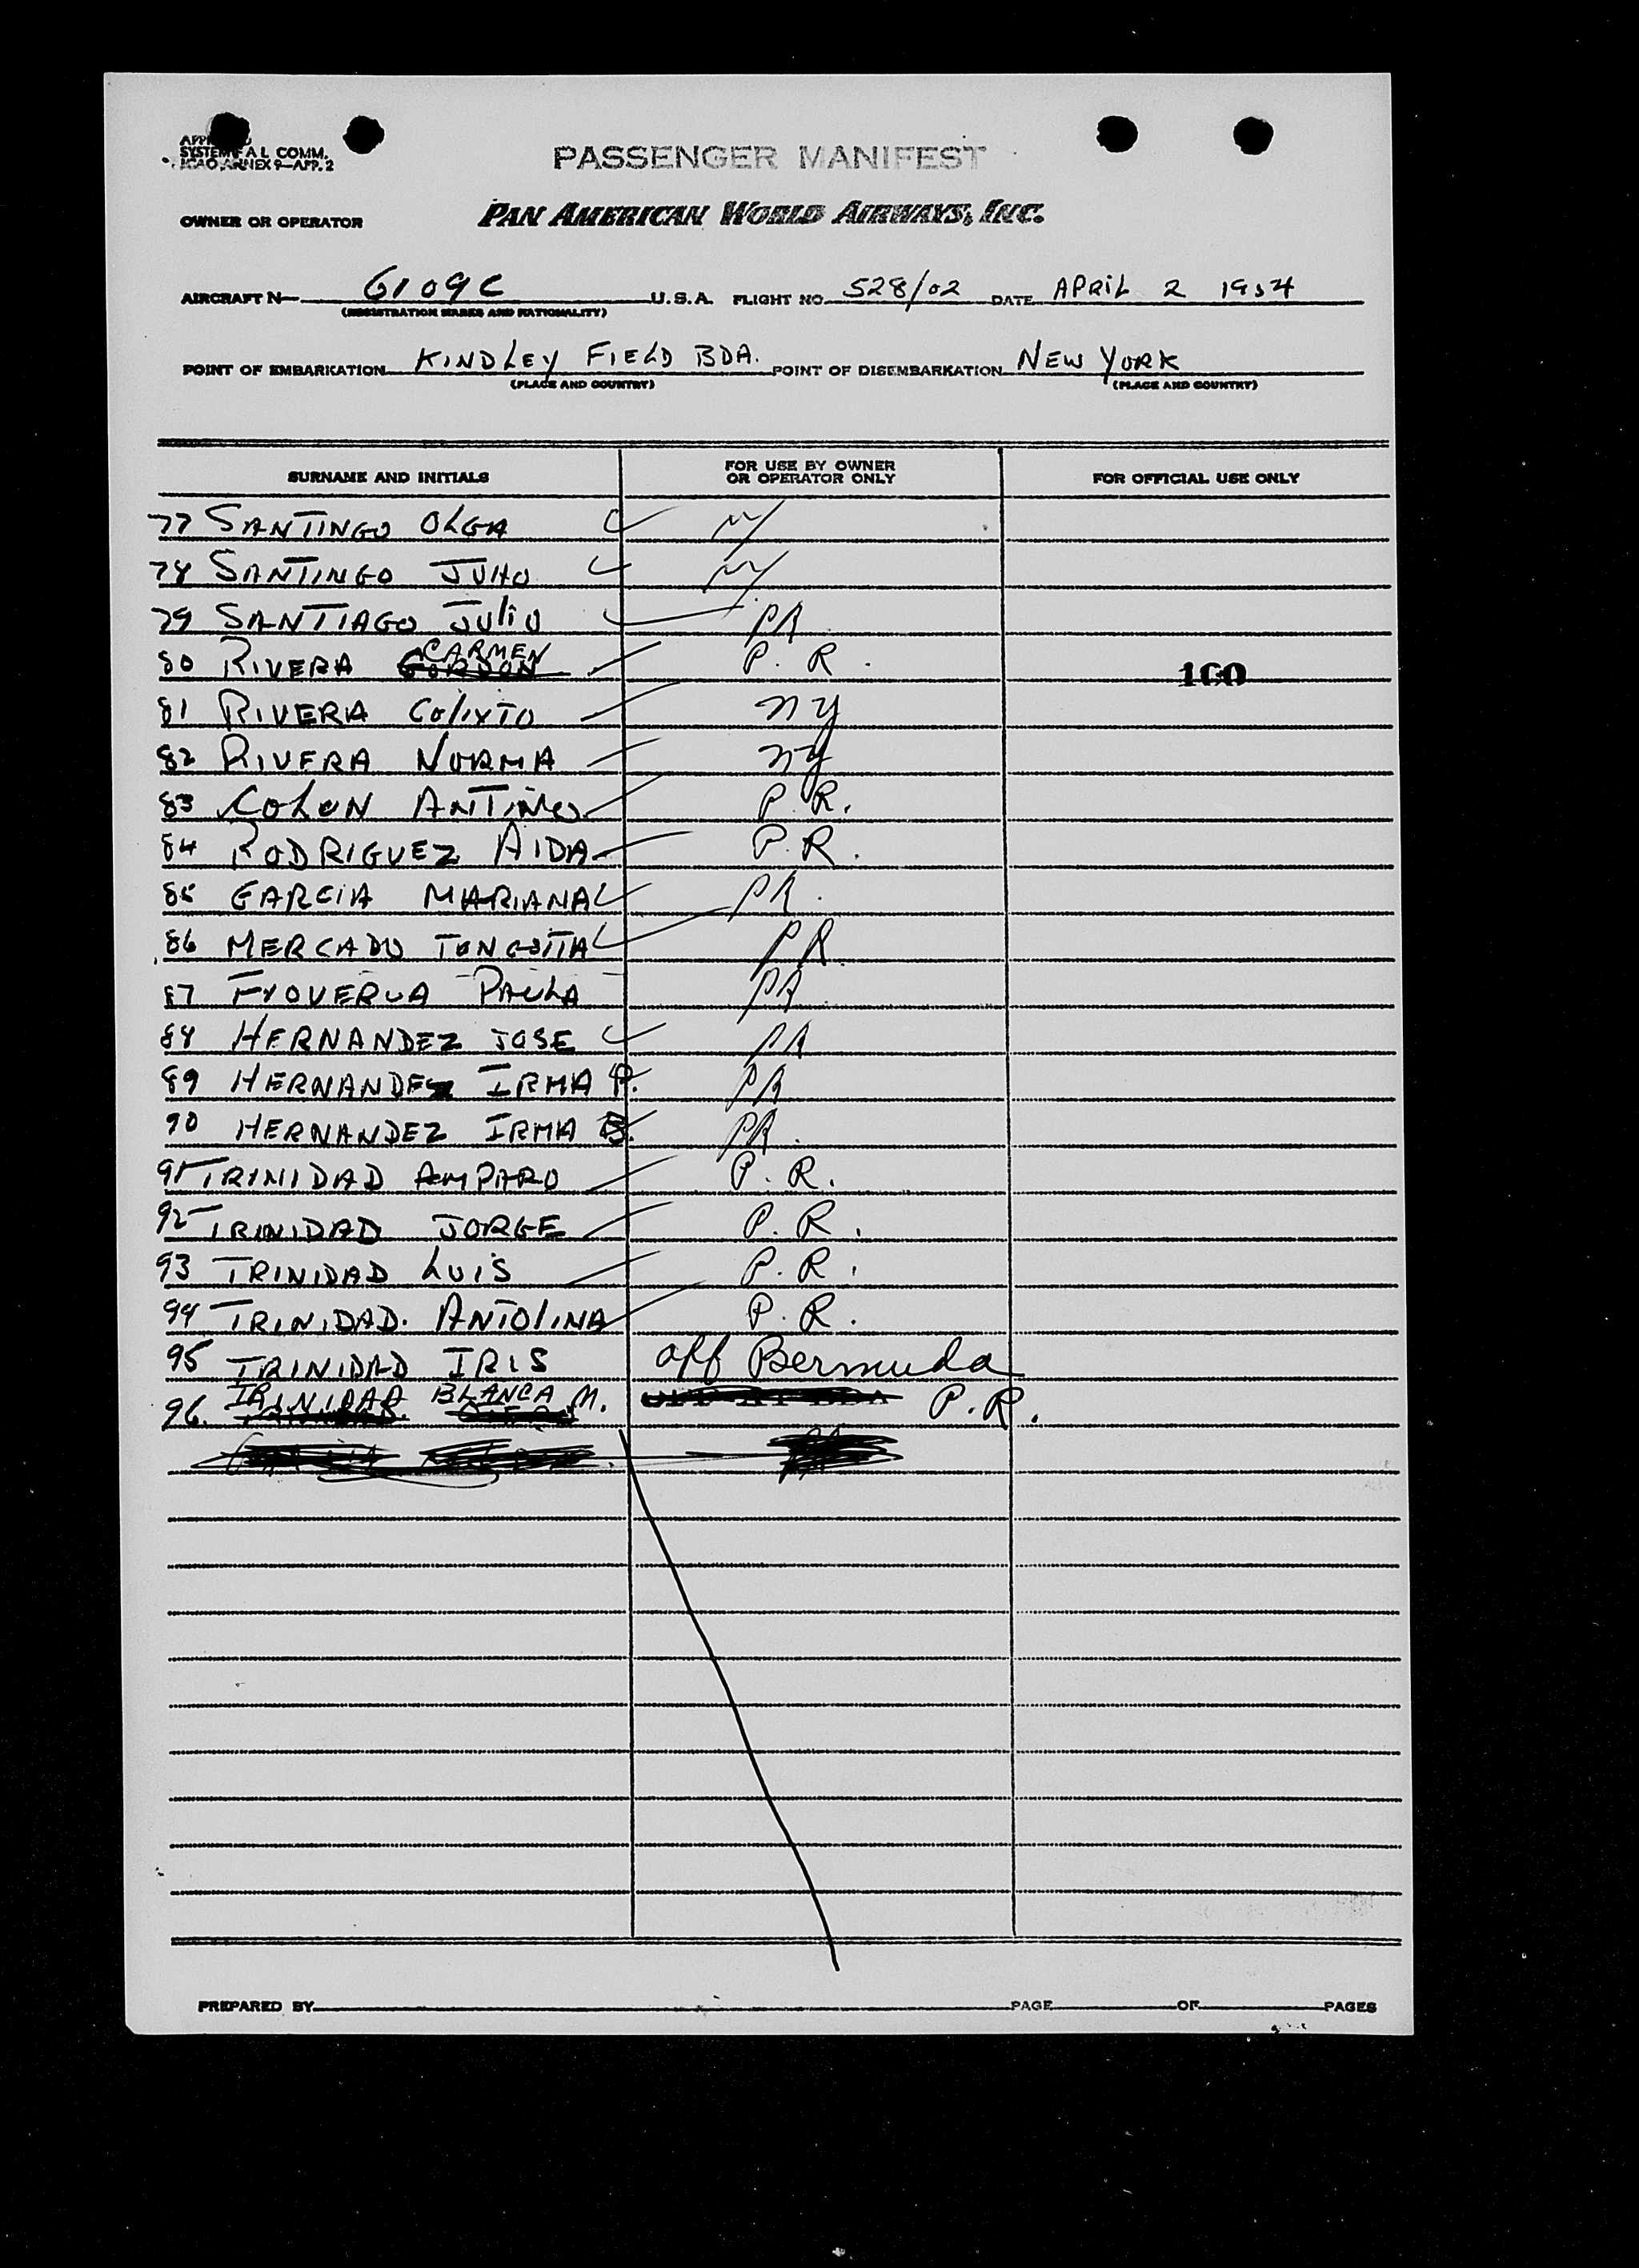 SYSTEM A L COMM.
ICAO ANNEX 9—APP. 2
PASSENGER MANIFEST
OWNER OR OPERATOR PAN AMERICAN WORLD AIRWAYS, INC.
AIRCRAFT N— 6109C U.S.A. FLIGHT NO. 528/02 DATE APRIL 2 1954
(REGISTRATION MARKS AND NATIONALITY)
POINT OF EMBARKATION KINDLEY FIELD BDA. POINT OF DISEMBARKATION NEW YORK
(PLACE AND COUNTRY) (PLACE AND COUNTRY)
SURNAME AND INITIALS FOR USE BY OWNER OR OPERATOR ONLY FOR OFFICIAL USE ONLY
77 SANTINGO OLGA NY
78 SANTINGO JULIO NY
79 SANTIAGO JULIO PR
80 RIVERA GORDON CARMEN P.R. 160
81 RIVERA COLIXTO NY
82 RIVERA NORMA NY
83 COLON P.R.
84 RODRIGUEZ AIDA P.R.
85 GARCIA MARIANA PR.
86 MERCADO PR
87 PAULA PR
88 HERNANDEZ JOSE PR
89 HERNANDEZ IRMA P. PR
90 HERNANDEZ IRMA B. PR.
91 TRINIDAD AMPARO P.R.
92 TRINIDAD JORGE P.R.
93 TRINIDAD LUIS P.R.
94 TRINIDAD. ANTOLINA P.R.
95 TRINIDAD IRIS off Bermuda
96. TRINIDAD BLANCA M. P.R.
PREPARED BY PAGE OF PAGES